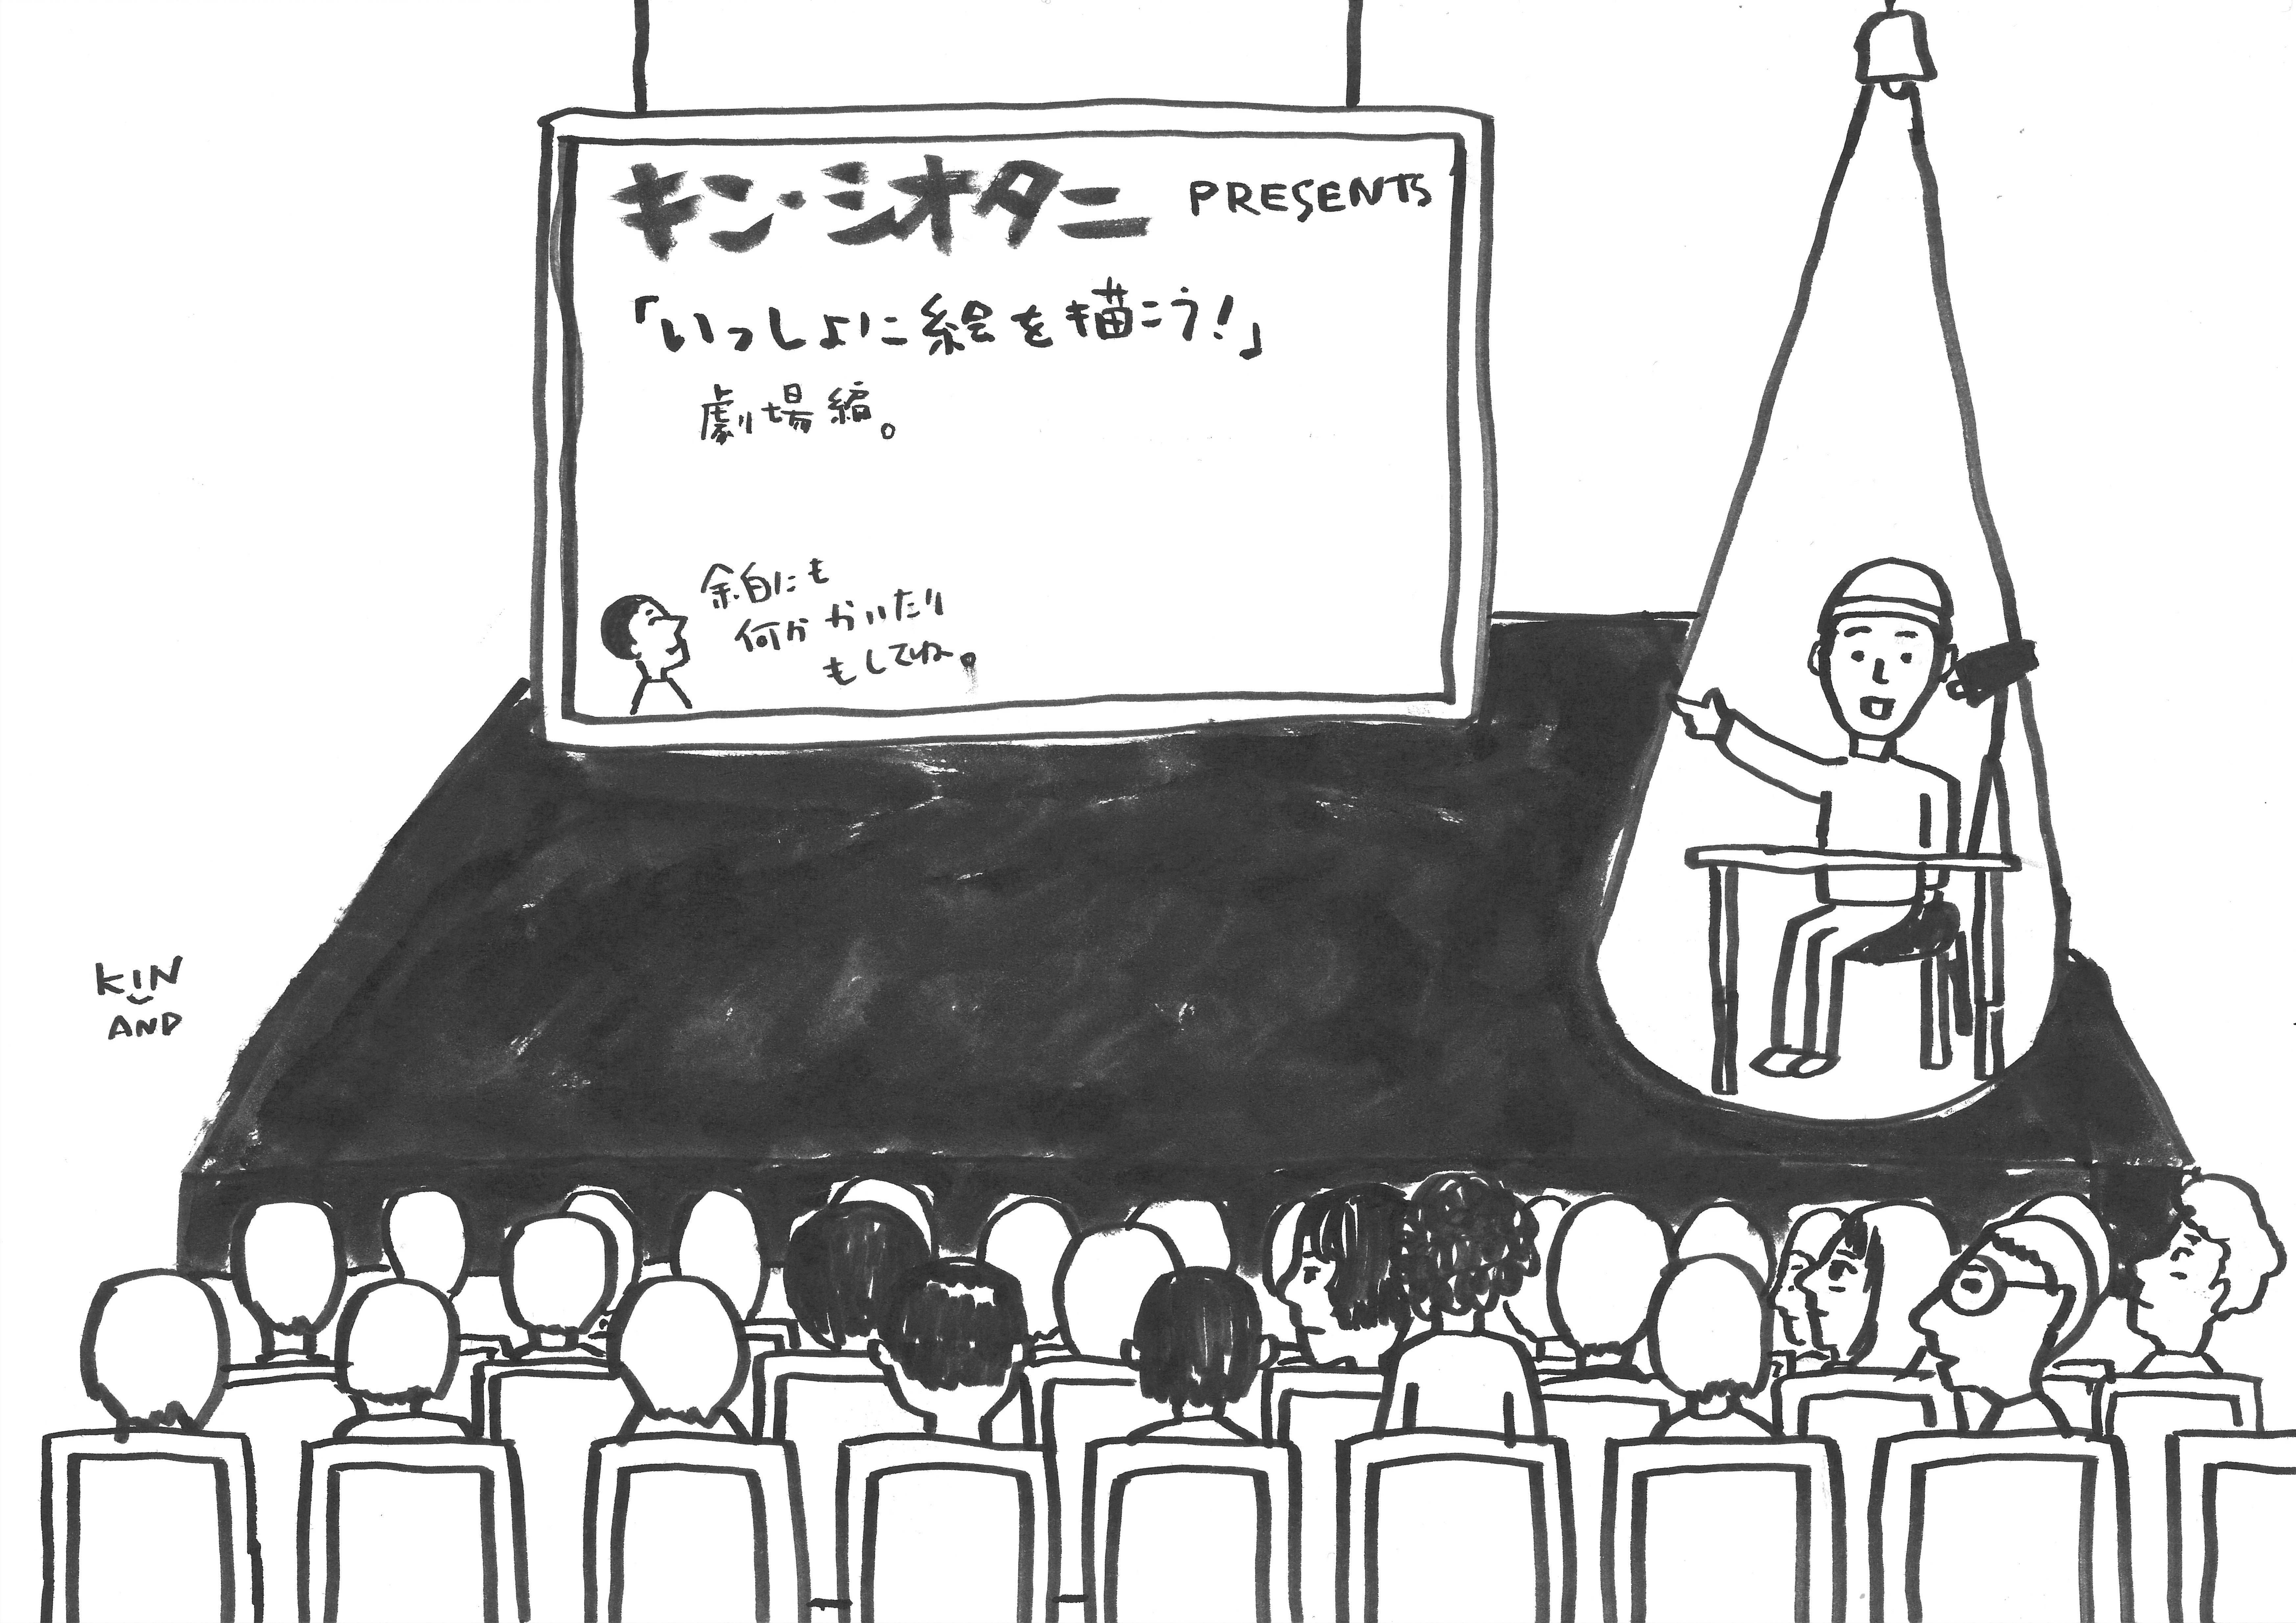 キン・シオタニ PRESENTS
「いっしょに絵を描こう!」
劇場編。
余白にも
何か かいたり
もしてね。
KIN
AND